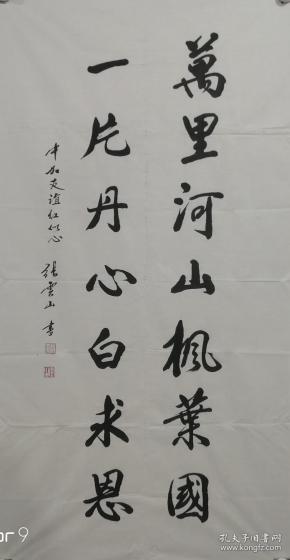 萬里河山楓葉國
一片丹心白求恩
中加友誼紅似心 張雲山 書
or 9
孔夫子旧书网
kongfz.com